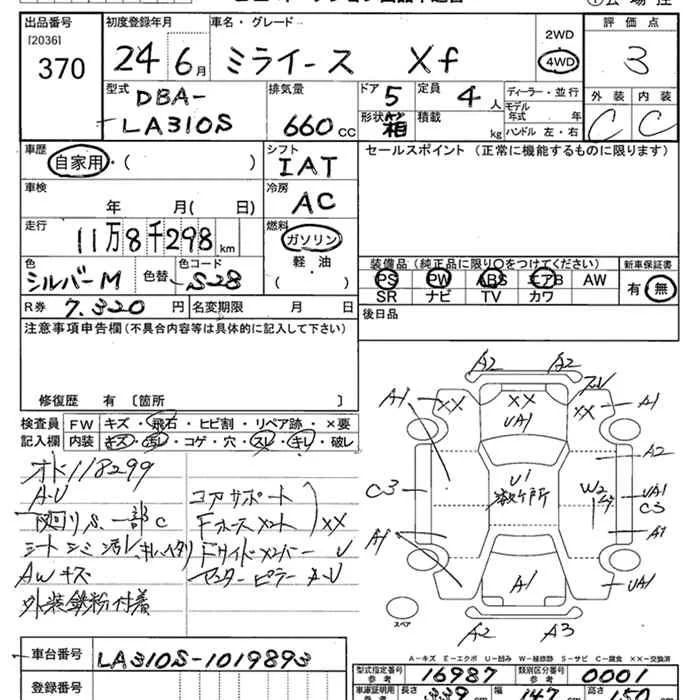 出品番号 初度登録年月 車名・グレード 評価点
[2036]
370
24 6月 ミライース Xf
2WD
4WD
3
型式 排気量 ドア 定員 ディーラー・並行 外装 内装
DBA-
LA310S
660cc
5
4人
モデル年式 年
形状 箱 積載 kg ハンドル 左・右
C C
車歴 シフト セールスポイント (正常に機能するものに限ります)
自家用・( )
IAT
車検 冷房
年 月( 日)
AC
走行 燃料
11万8千298km
ガソリン
軽・油
( )
色 色替 色コード
シルバーM S28
装備品 (純正品に限り○をつけてください) 新車保証書
PS PW ABS エアB AW 有 無
SR ナビ TV カワ
R券 7.320円 名変期限 月 日
後日品
注意事項申告欄(不具合内容等は具体的に記入して下さい)
修復歴 有 〔箇所 〕
検査員記入欄
FW キズ・飛石・ヒビ割・リペア跡・×要
内装 キズ・汚レ・コゲ・穴・スレ・キレ・破レ
オド118299
A・U
下廻りS、一部C
AWキズ
外装鉄粉付着
コアサポート
XX
A2 A2
A1 XX XX UA1 XX A1
A2
C3 U1 W2 UA1
C3
A1 A1
A1 UA1
A2 A3
スペア
A-キズ E-エクボ U-凹み W-補修跡 S-サビ C-腐食 XX-交換済
車台番号 LA310S-1019893
登録番号
型式指定番号 参考 16987 類別区分番号 参考 0001
車庫証明用 参考 長さ 339 幅 147 高さ 150